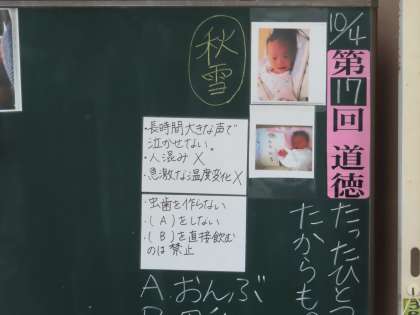 10/4
第17回 道徳
たったひとつ
たからも
秋雪
・長時間大きな声で
泣かせない。
・人混み×
・急激な温度変化×
・虫歯を作らない
・(A)をしない
・(B)を直接飲む
のは禁止
A.おんぶ
B.